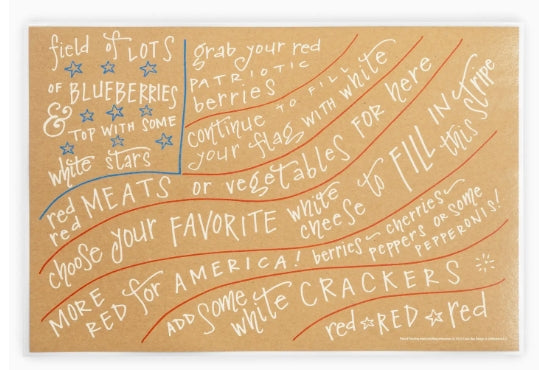 field of LOTS
OF BLUEBERRIES
& TOP WITH SOME
white stars
grab your red
PATRIOTIC
berries
continue TO FILL
your flag WITH white
red MEATS or vegetables FOR here
red
choose your FAVORITE white
cheese to FILL IN
this stripe
MORE
RED for AMERICA! berries~cherries~
peppers or some
PEPPERONIS!
ADD some
white CRACKERS
red ☆ RED ☆ red